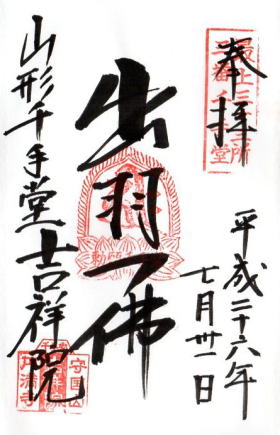 奉拝
平成二十六年
七月卅一日
出羽一佛
山形千手堂吉祥院